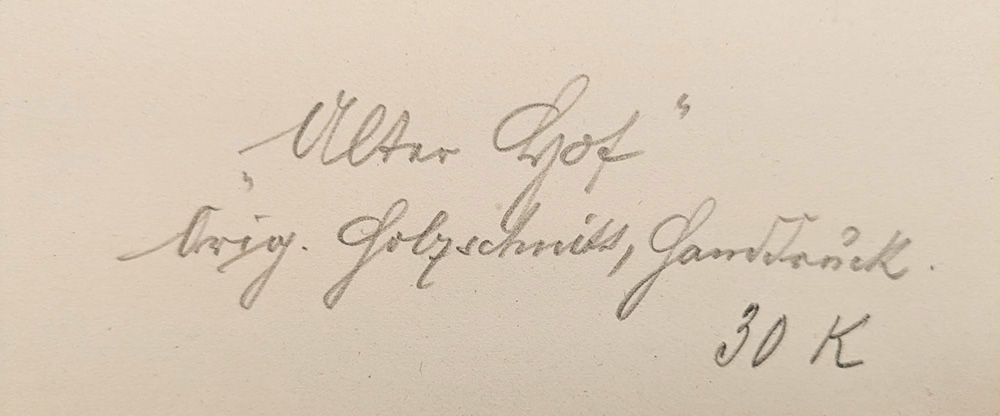 „Alter Hof“
Orig. Holzschnitt, Handdruck.
30 K